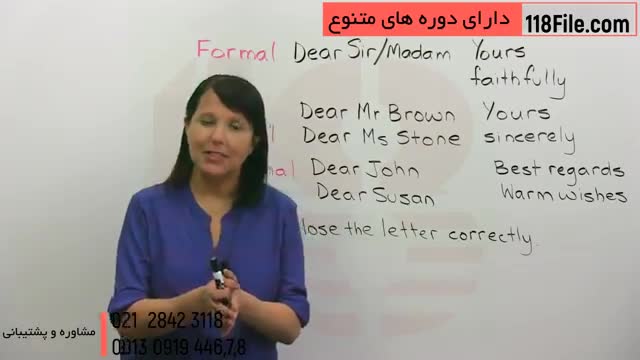 دارای دوره های متنوع 118File.com
Formal Dear Sir/Madam Yours
faithfully
Dear Mr Brown Yours
Dear Ms Stone sincerely
Dear John Best regards
Dear Susan Warm wishes
lose the letter correctly.
021 2842 3118
مشاوره و پشتیبانی
0919 446,7,8